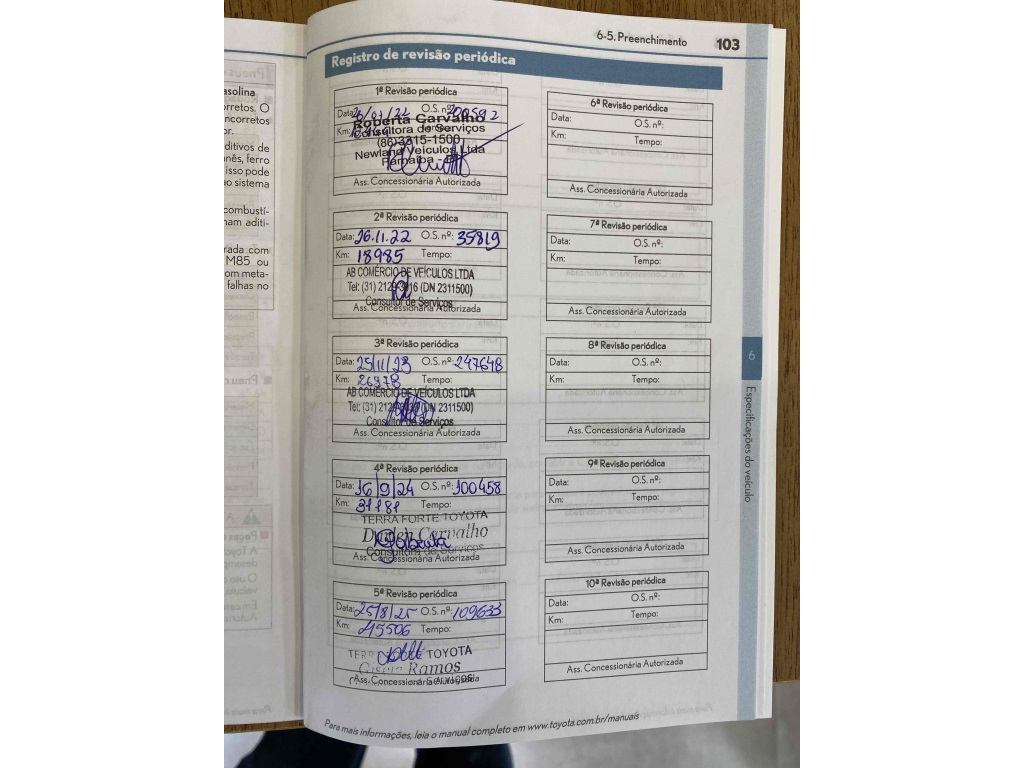 asolina
rretos. O
ncorretos
or.
ditivos de
nês, ferro
isso pode
o sistema
combustí-
nam aditi-
rada com
M85 ou
om meta-
falhas no
6-5. Preenchimento 103
Registro de revisão periódica
1ª Revisão periódica
Data: O.S. nº:
Km:
Roberta Carvalho
Consultora de Serviços
(86)3315-1500
Newland Veículos Ltda
Parnaíba -
Ass. Concessionária Autorizada
2ª Revisão periódica
Data: 26.11.22 O.S. nº: 35819
Km: 18985 Tempo:
AB COMÉRCIO DE VEÍCULOS LTDA
Tel: (31) (DN 2311500)
Consultor de Serviços
Ass. Concessionária Autorizada
3ª Revisão periódica
Data: 25/11/23 O.S. nº: 247648
Km: 26978 Tempo:
AB COMÉRCIO DE VEÍCULOS LTDA
Tel: (31) (DN 2311500)
Consultor de Serviços
Ass. Concessionária Autorizada
4ª Revisão periódica
Data: 16/9/24 O.S. nº: 100458
Km: 31181 Tempo:
TERRA FORTE TOYOTA
Carvalho
Consultora de Serviços
Ass. Concessionária Autorizada
5ª Revisão periódica
Data: 25/8/25 O.S. nº: 109633
Km: 45506 Tempo:
TOYOTA
Ramos
Ass. Concessionária Autorizada
6ª Revisão periódica
Data: O.S. nº:
Km: Tempo:
Ass. Concessionária Autorizada
7ª Revisão periódica
Data: O.S. nº:
Km: Tempo:
Ass. Concessionária Autorizada
8ª Revisão periódica
Data: O.S. nº:
Km: Tempo:
Ass. Concessionária Autorizada
9ª Revisão periódica
Data: O.S. nº:
Km: Tempo:
Ass. Concessionária Autorizada
10ª Revisão periódica
Data: O.S. nº:
Km: Tempo:
Ass. Concessionária Autorizada
6
Especificações do veículo
Para mais informações, leia o manual completo em www.toyota.com.br/manuais